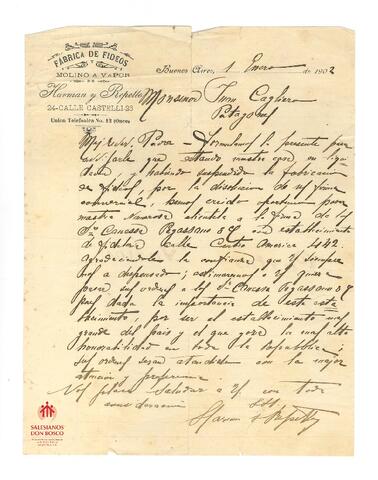 FÁBRICA DE FIDEOS
Y
MOLINO A VAPOR
DE
Harman y Repetto
24-CALLE CASTELLI-23
Union Telefonica No. 12 (Once)
Buenos Aires, 1 Enero de 1902
Monseñor Juan Cagliero
Patagones
Muy Rvdo. Padre = Formulamos la presente para
avisarle que estando nuestra casa, en liqui
dacion, y habiendo suspendido la fabricacion
de fideos, por la disolucion de su firma
comercial, hemos creido oportuno
nuestra numerosa clientela a la firma de los
Sres Canessa Pegassano y Ca con establecimiento
de fideleria calle Centro America 442.
Agradeciendole la confianza que siempre
nos ha dispensado; estimaremos si quiere
pasar sus ordenes a los Sres Canessa Pegassano y Ca
pues dada la importancia de este esta
blecimiento, por ser el establecimiento mas
grande del pais y el que goza la mas alta
honorabilidad en toda la Republica;
sus ordenes seran atendidas con la mayor
atencion y preferencia
Nos place saludar a V. con toda
consideracion
SSS.
Harman & Repetto
SALESIANOS
DON BOSCO